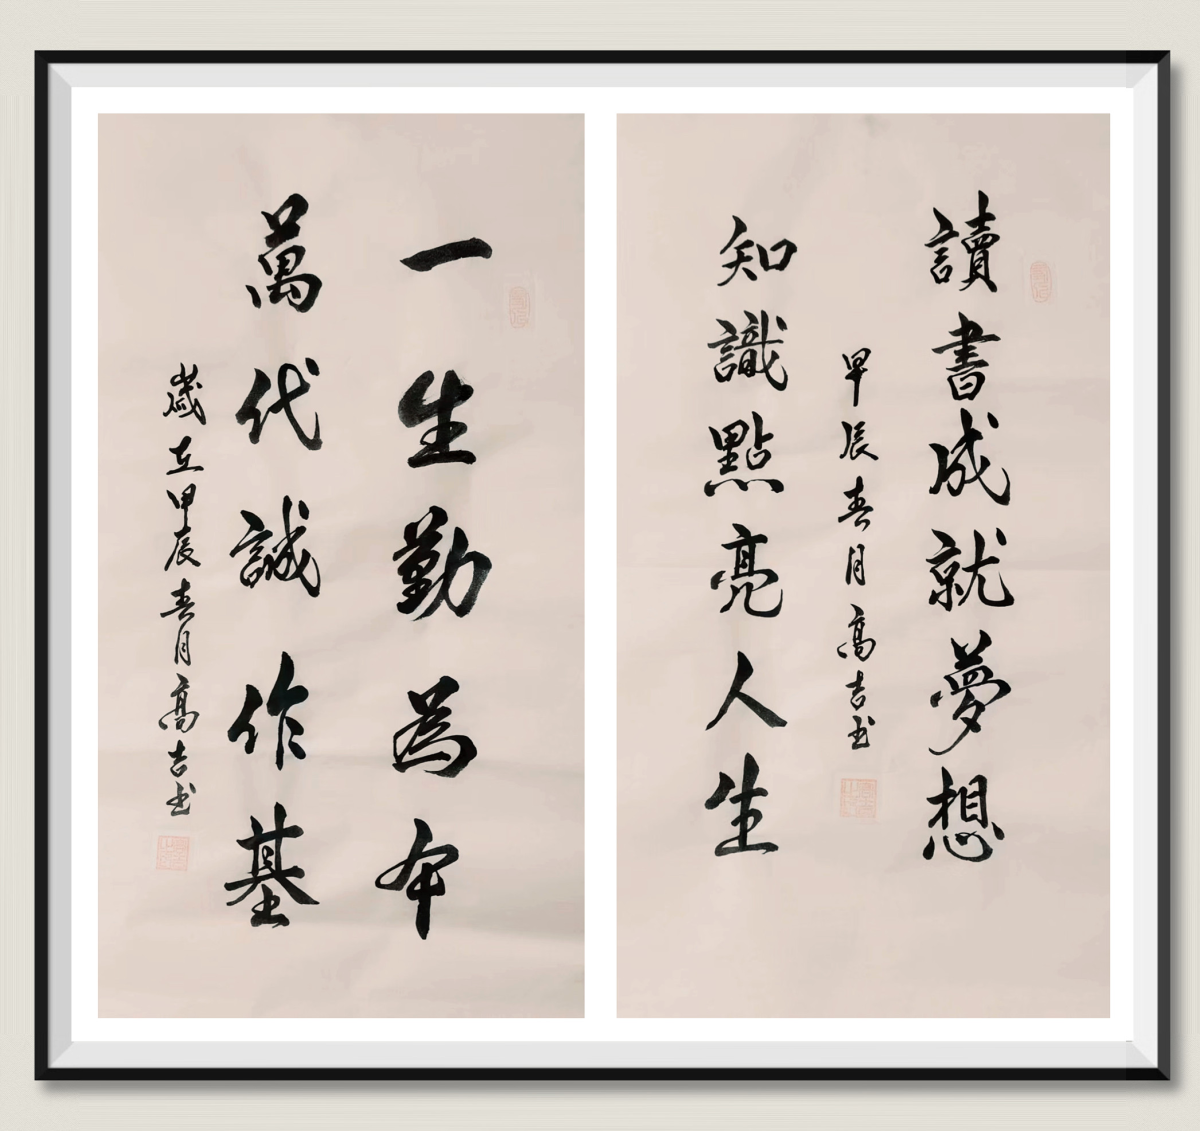 讀書成就夢想
甲辰春月高吉书
知識點亮人生
一生勤為本
萬代誠作基
歲在甲辰春月高吉书